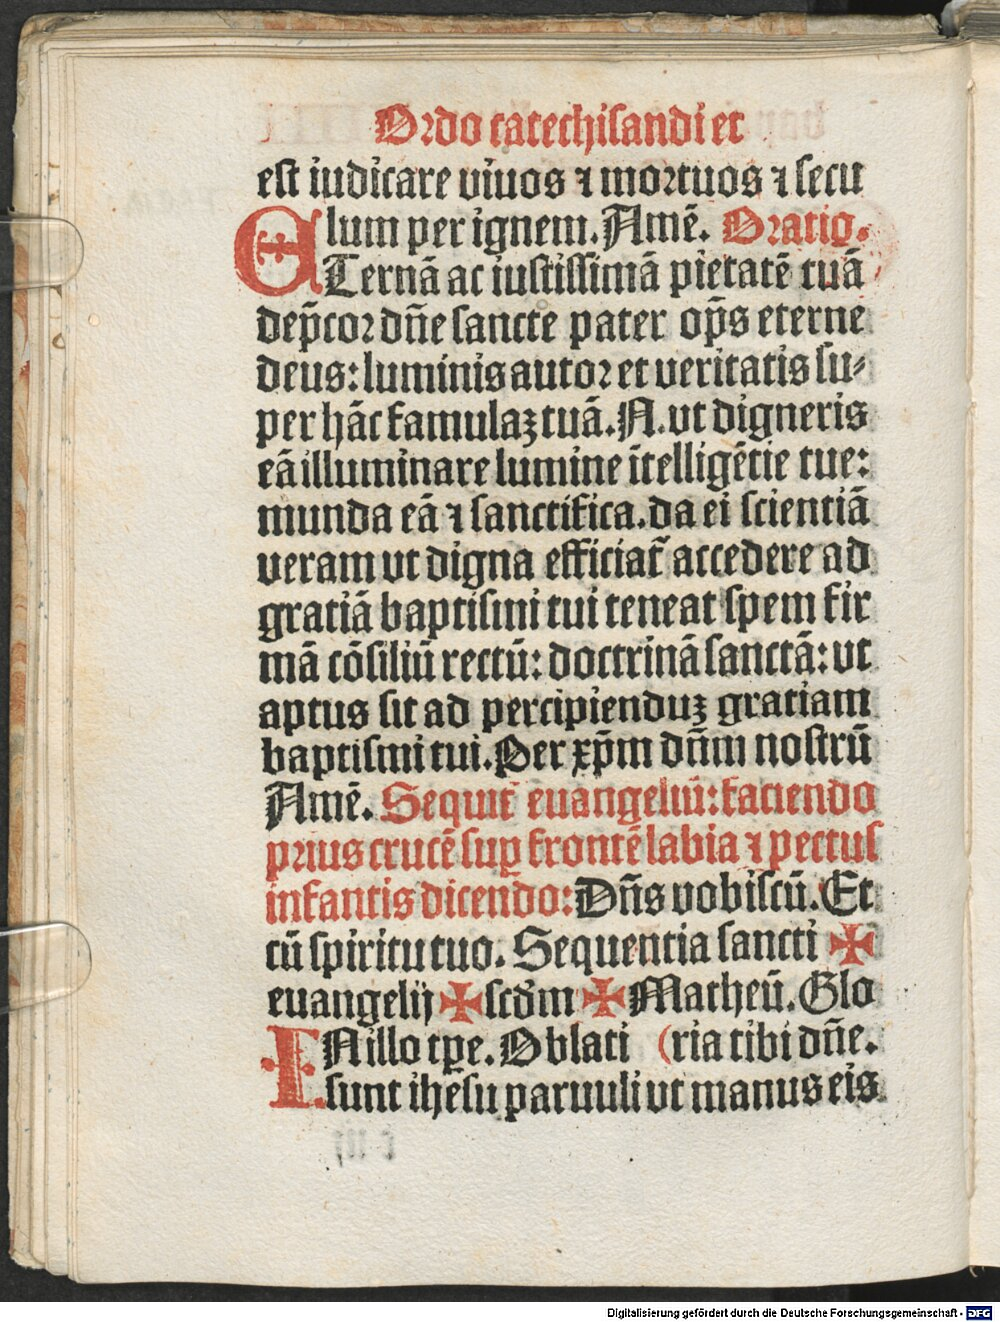 Ordo catechisandi et
est iudicare viuos ⁊ mortuos ⁊ secu
lum per ignem. Amē. Oratio.
ETernā ac iustissimā pietatē tuā
dep̄cor dn̄e sancte pater op̄s eterne
deus: luminis autor et veritatis su⸗
per hāc famulaꝫ tuā. N. vt digneris
eā illuminare lumine ītelligētie tue:
munda eā ⁊ sanctifica. da ei scientiā
veram vt digna efficiat᷑ accedere ad
gratiā baptismi tui teneat spem fir
mā cōsiliū rectū: doctrinā sanctā: vt
aptus sit ad percipienduꝫ gratiam
baptismi tui. Per xp̄m dn̄m nostrū
Amē. Sequit᷑ euangeliū: faciendo
prius crucē suꝑ frontē labia ⁊ pectus
infantis dicendo: Dn̄s vobiscū. Et
cū spiritu tuo. Sequentia sancti ✠
euangelij ✠ scd̄m ✠ Matheū. Glo
INillo tꝑe. Oblati (ria tibi dn̄e.
sunt ihesu paruuli vt manus eis
Digitalisierung gefördert durch die Deutsche Forschungsgemeinschaft - DFG